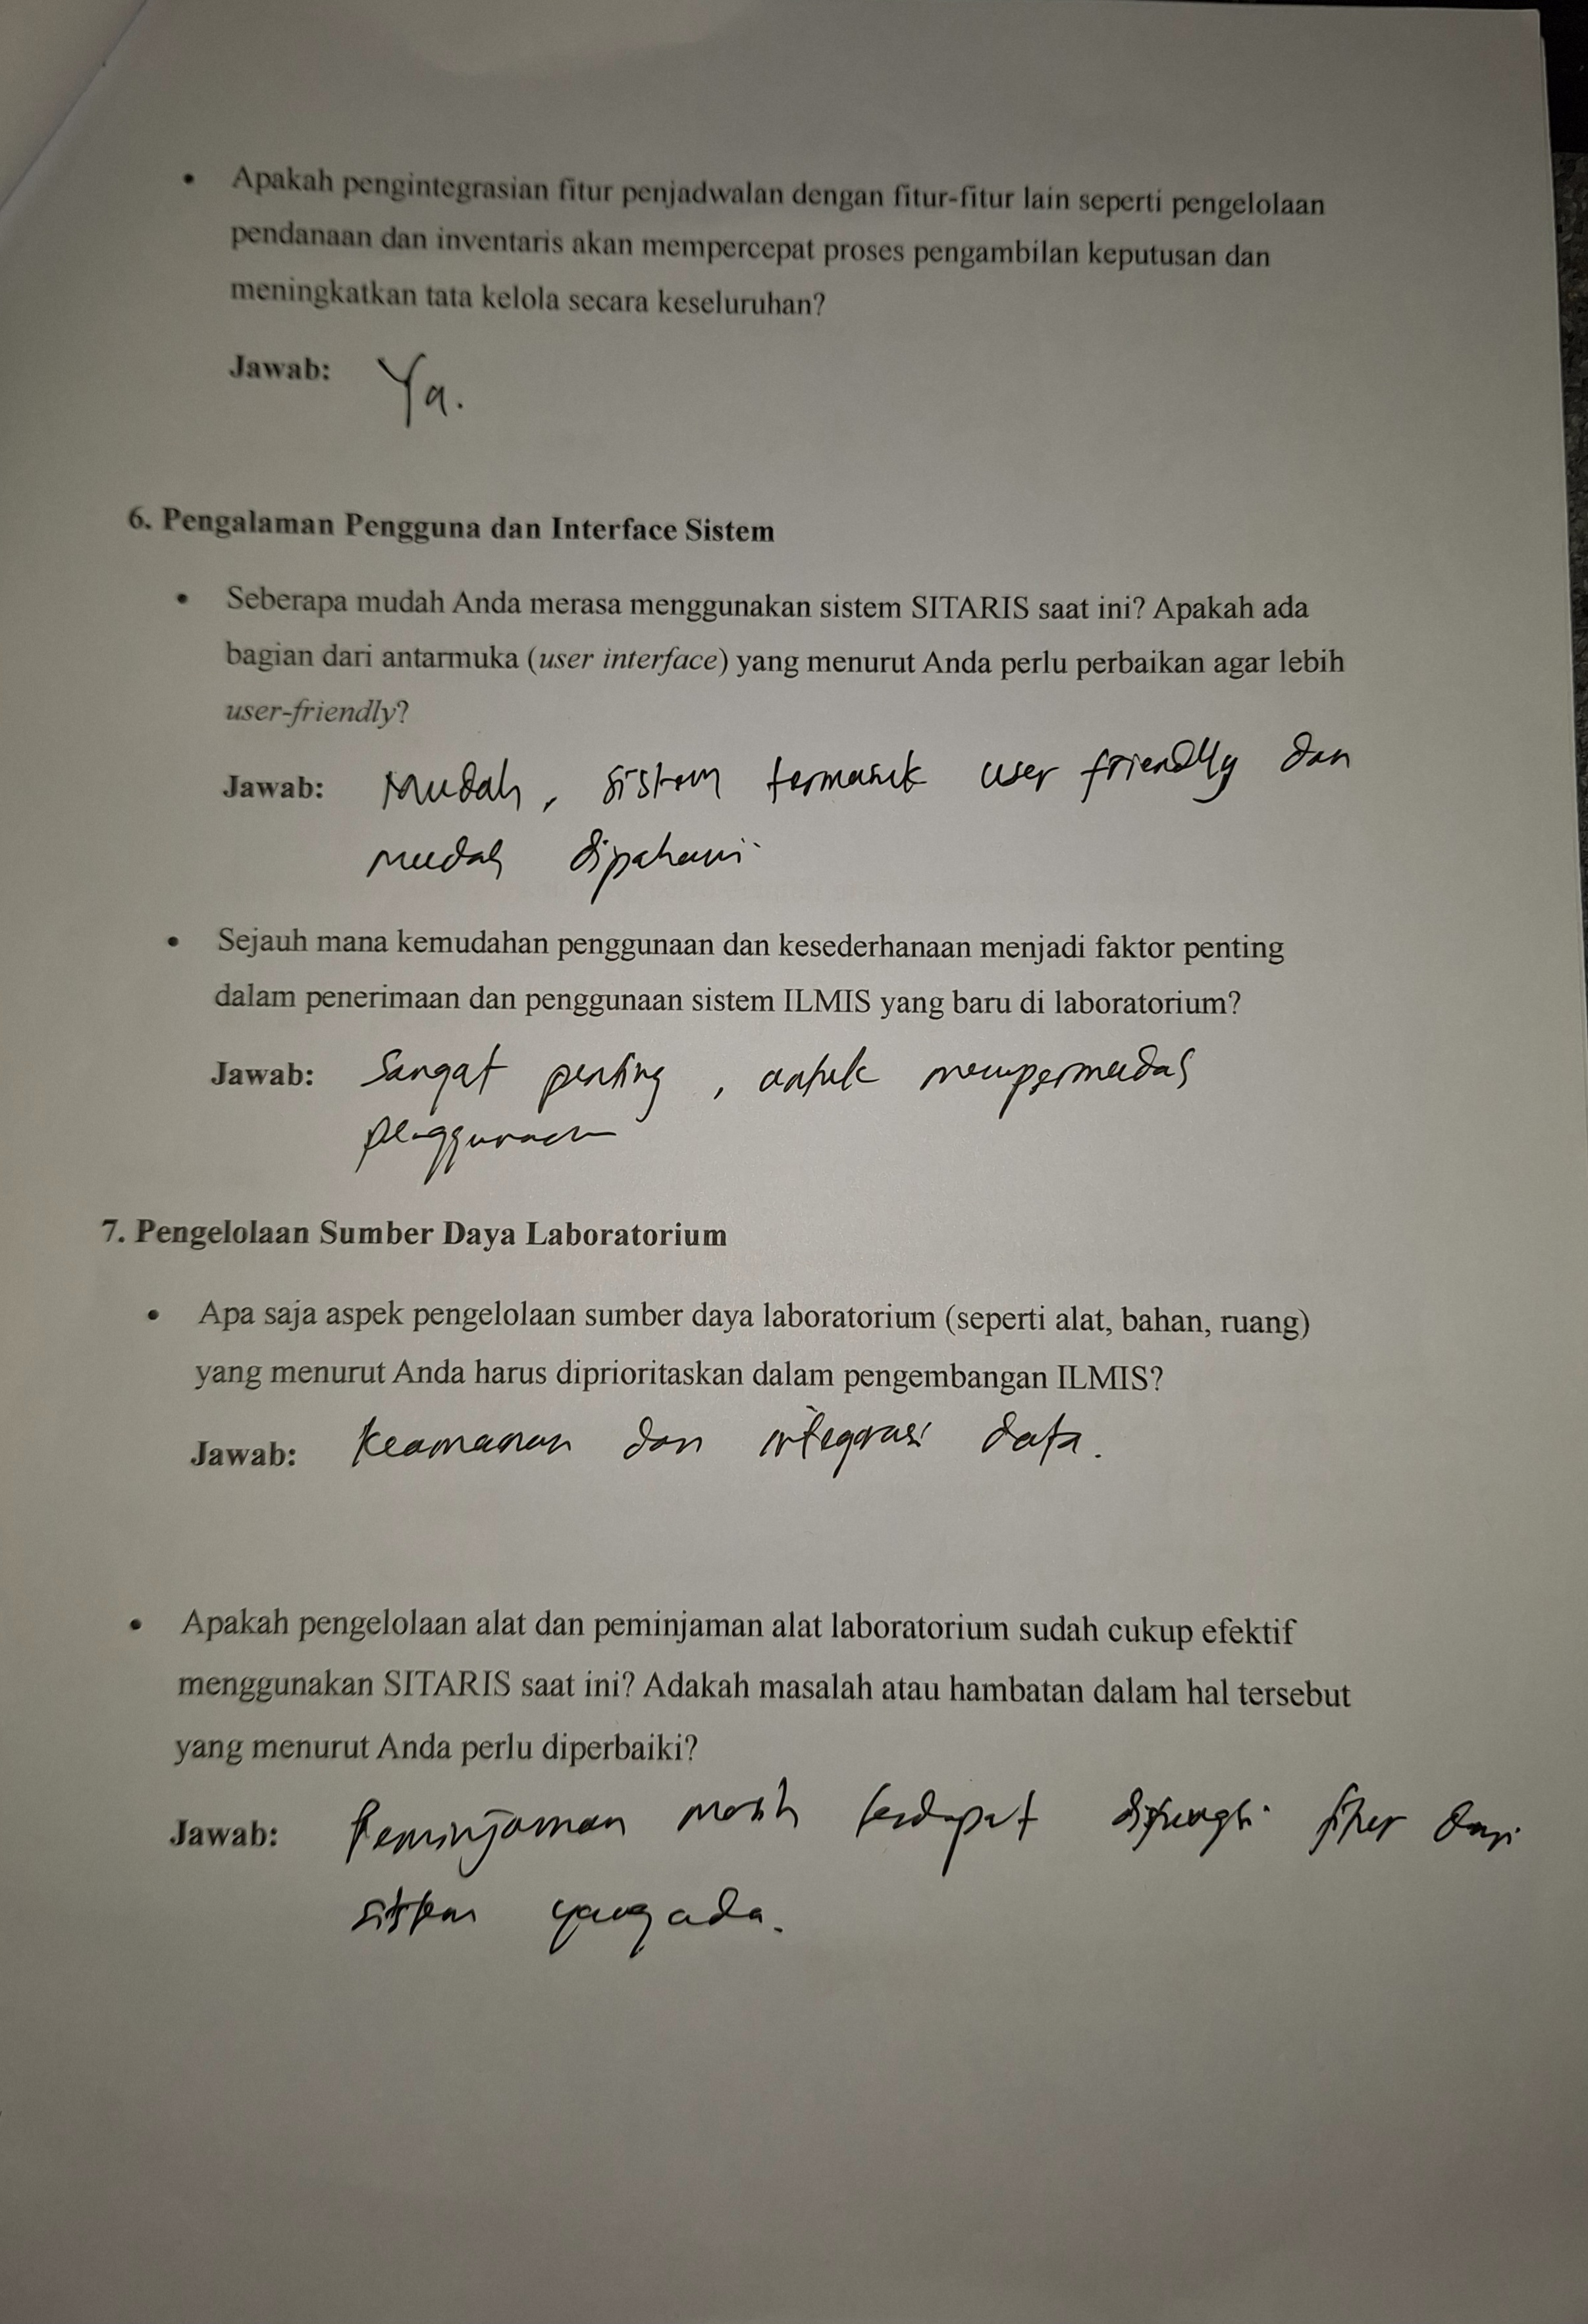 • Apakah pengintegrasian fitur penjadwalan dengan fitur-fitur lain seperti pengelolaan
pendanaan dan inventaris akan mempercepat proses pengambilan keputusan dan
meningkatkan tata kelola secara keseluruhan?
Jawab: Ya.
6. Pengalaman Pengguna dan Interface Sistem
• Seberapa mudah Anda merasa menggunakan sistem SITARIS saat ini? Apakah ada
bagian dari antarmuka (user interface) yang menurut Anda perlu perbaikan agar lebih
user-friendly?
Jawab: Mudah, sistem termasuk user friendly dan
mudah dipahami
• Sejauh mana kemudahan penggunaan dan kesederhanaan menjadi faktor penting
dalam penerimaan dan penggunaan sistem ILMIS yang baru di laboratorium?
Jawab: Sangat penting, untuk mempermudah
penggunaan
7. Pengelolaan Sumber Daya Laboratorium
• Apa saja aspek pengelolaan sumber daya laboratorium (seperti alat, bahan, ruang)
yang menurut Anda harus diprioritaskan dalam pengembangan ILMIS?
Jawab: Keamanan dan integrasi data.
• Apakah pengelolaan alat dan peminjaman alat laboratorium sudah cukup efektif
menggunakan SITARIS saat ini? Adakah masalah atau hambatan dalam hal tersebut
yang menurut Anda perlu diperbaiki?
Jawab: Peminjaman masih terdapat disfungsi fitur dari
sistem yang ada.